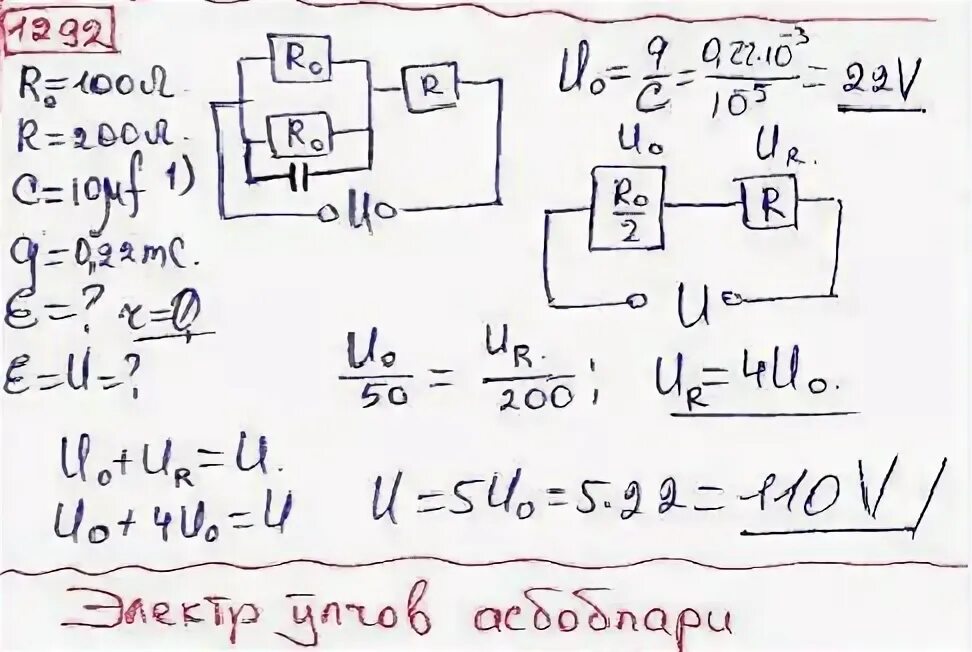 1292
R₀=100Ω.
R=200Ω.
C=10μf 1)
q=0,22mC.
ε=? r=0
ε=U=?
R₀
R
R₀
U
U₀ = q/C = 0,22·10⁻³/10⁻⁵ = 22V
U₀ U_R.
R₀/2 R
U
U₀/50 = U_R./200 ; U_R=4U₀.
U₀+U_R=U.
U₀+4U₀=U
U=5U₀=5·22=110V
Электр ўлчов асбоблари